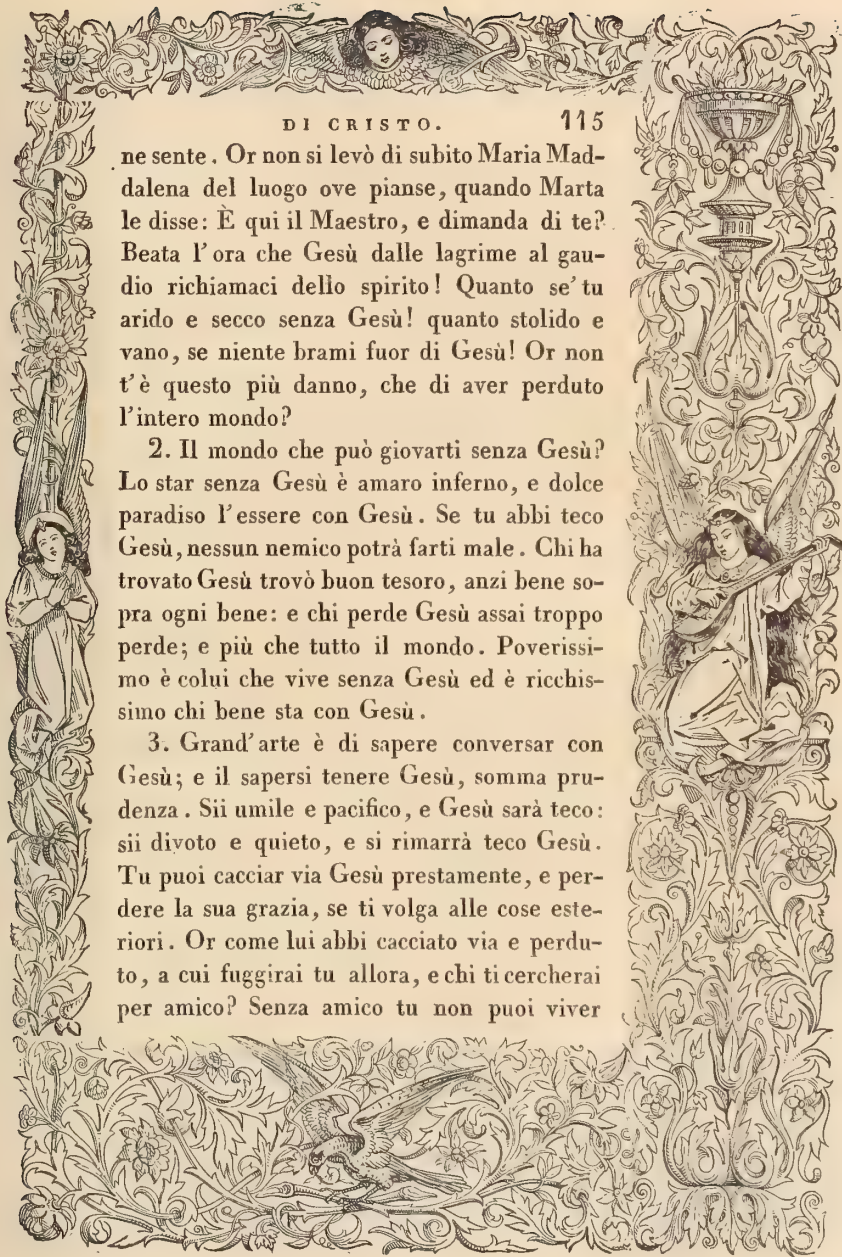 DI CRISTO. 115
ne sente. Or non si levò di subito Maria Mad-
dalena del luogo ove pianse, quando Marta
le disse: È qui il Maestro, e dimanda di te?
Beata l'ora che Gesù dalle lagrime al gau-
dio richiamaci dello spirito! Quanto se' tu
arido e secco senza Gesù! quanto stolido e
vano, se niente brami fuor di Gesù! Or non
t'è questo più danno, che di aver perduto
l'intero mondo?
2. Il mondo che può giovarti senza Gesù?
Lo star senza Gesù è amaro inferno, e dolce
paradiso l'essere con Gesù. Se tu abbi teco
Gesù, nessun nemico potrà farti male. Chi ha
trovato Gesù trovò buon tesoro, anzi bene so-
pra ogni bene: e chi perde Gesù assai troppo
perde; e più che tutto il mondo. Poverissi-
mo è colui che vive senza Gesù ed è ricchis-
simo chi bene sta con Gesù.
3. Grand'arte è di sapere conversar con
Gesù; e il sapersi tenere Gesù, somma pru-
denza. Sii umile e pacifico, e Gesù sarà teco:
sii divoto e quieto, e si rimarrà teco Gesù.
Tu puoi cacciar via Gesù prestamente, e per-
dere la sua grazia, se ti volga alle cose este-
riori. Or come lui abbi cacciato via e perdu-
to, a cui fuggirai tu allora, e chi ti cercherai
per amico? Senza amico tu non puoi viver